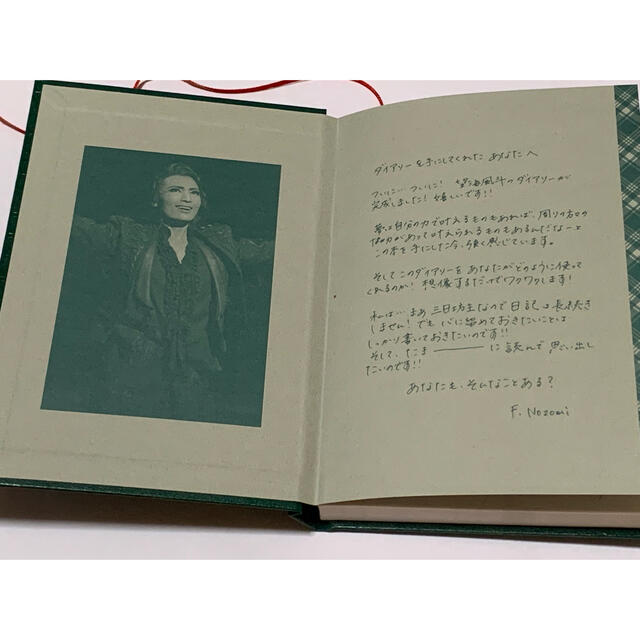 ダイアリーを手にしてくれた あなたへ
ついに… ついに! 望海風斗のダイアリーが
完成しました! 嬉しいです!!
夢は自分の力で叶えるものもあれば、周りの方の
協力があって叶えられるものもあるんだなーと
この本を手にした今、強く感じています。
そしてこのダイアリーを あなたがどのように使って
くれるのか! 想像するだけでワクワクします!
私は… まあ 三日坊主なので 日記は長続き
しません! でも 心に留めておきたいことは
しっかり書いておきたいのです!!
そして、たま―――に読んで 思い出し
たいのです!!
あなたも、そんなことある?
F. Nozomi